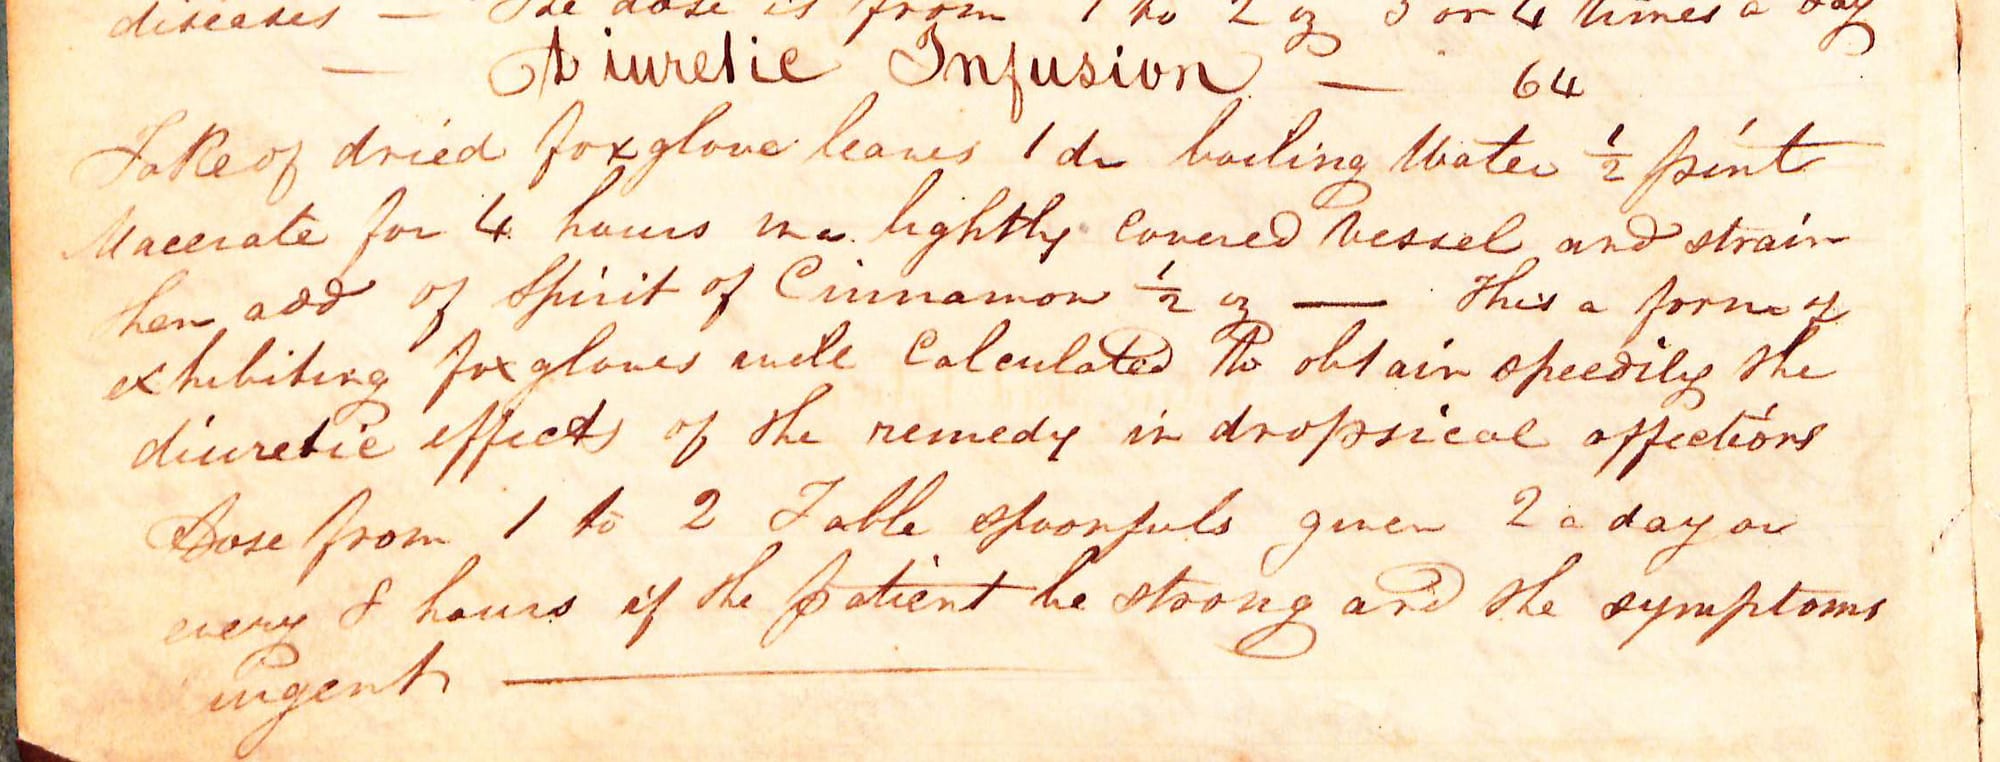 diseases — The dose is from 1 to 2 oz 3 or 4 times a day
— Diuretic Infusion — 64
Take of dried foxglove leaves 1 dr boiling Water ½ pint
Macerate for 4 hours in a lightly Covered Vessel and strain
then add of Spirit of Cinnamon ½ oz — This a form of
exhibiting foxgloves well Calculated to obtain speedily the
diuretic effects of the remedy in dropsical affections
Dose from 1 to 2 Table spoonfuls given 2 a day or
every 8 hours if the patient be strong and the symptoms
urgent —